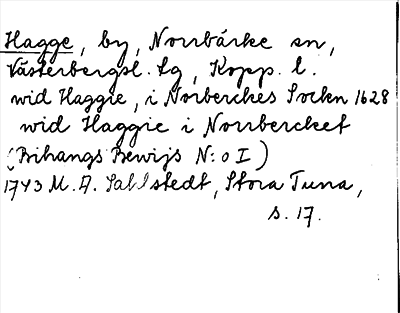 Hagge, by, Norrbärke sn,
Västerbergsl. tg, Kopp. l.
wid Haggie, i Norberches Socken 1628
wid Haggie i Norrbercket
(Bihangs Bewijs N:o I)
1743 M. A. Sahlstedt, Stora Tuna,
s. 17.